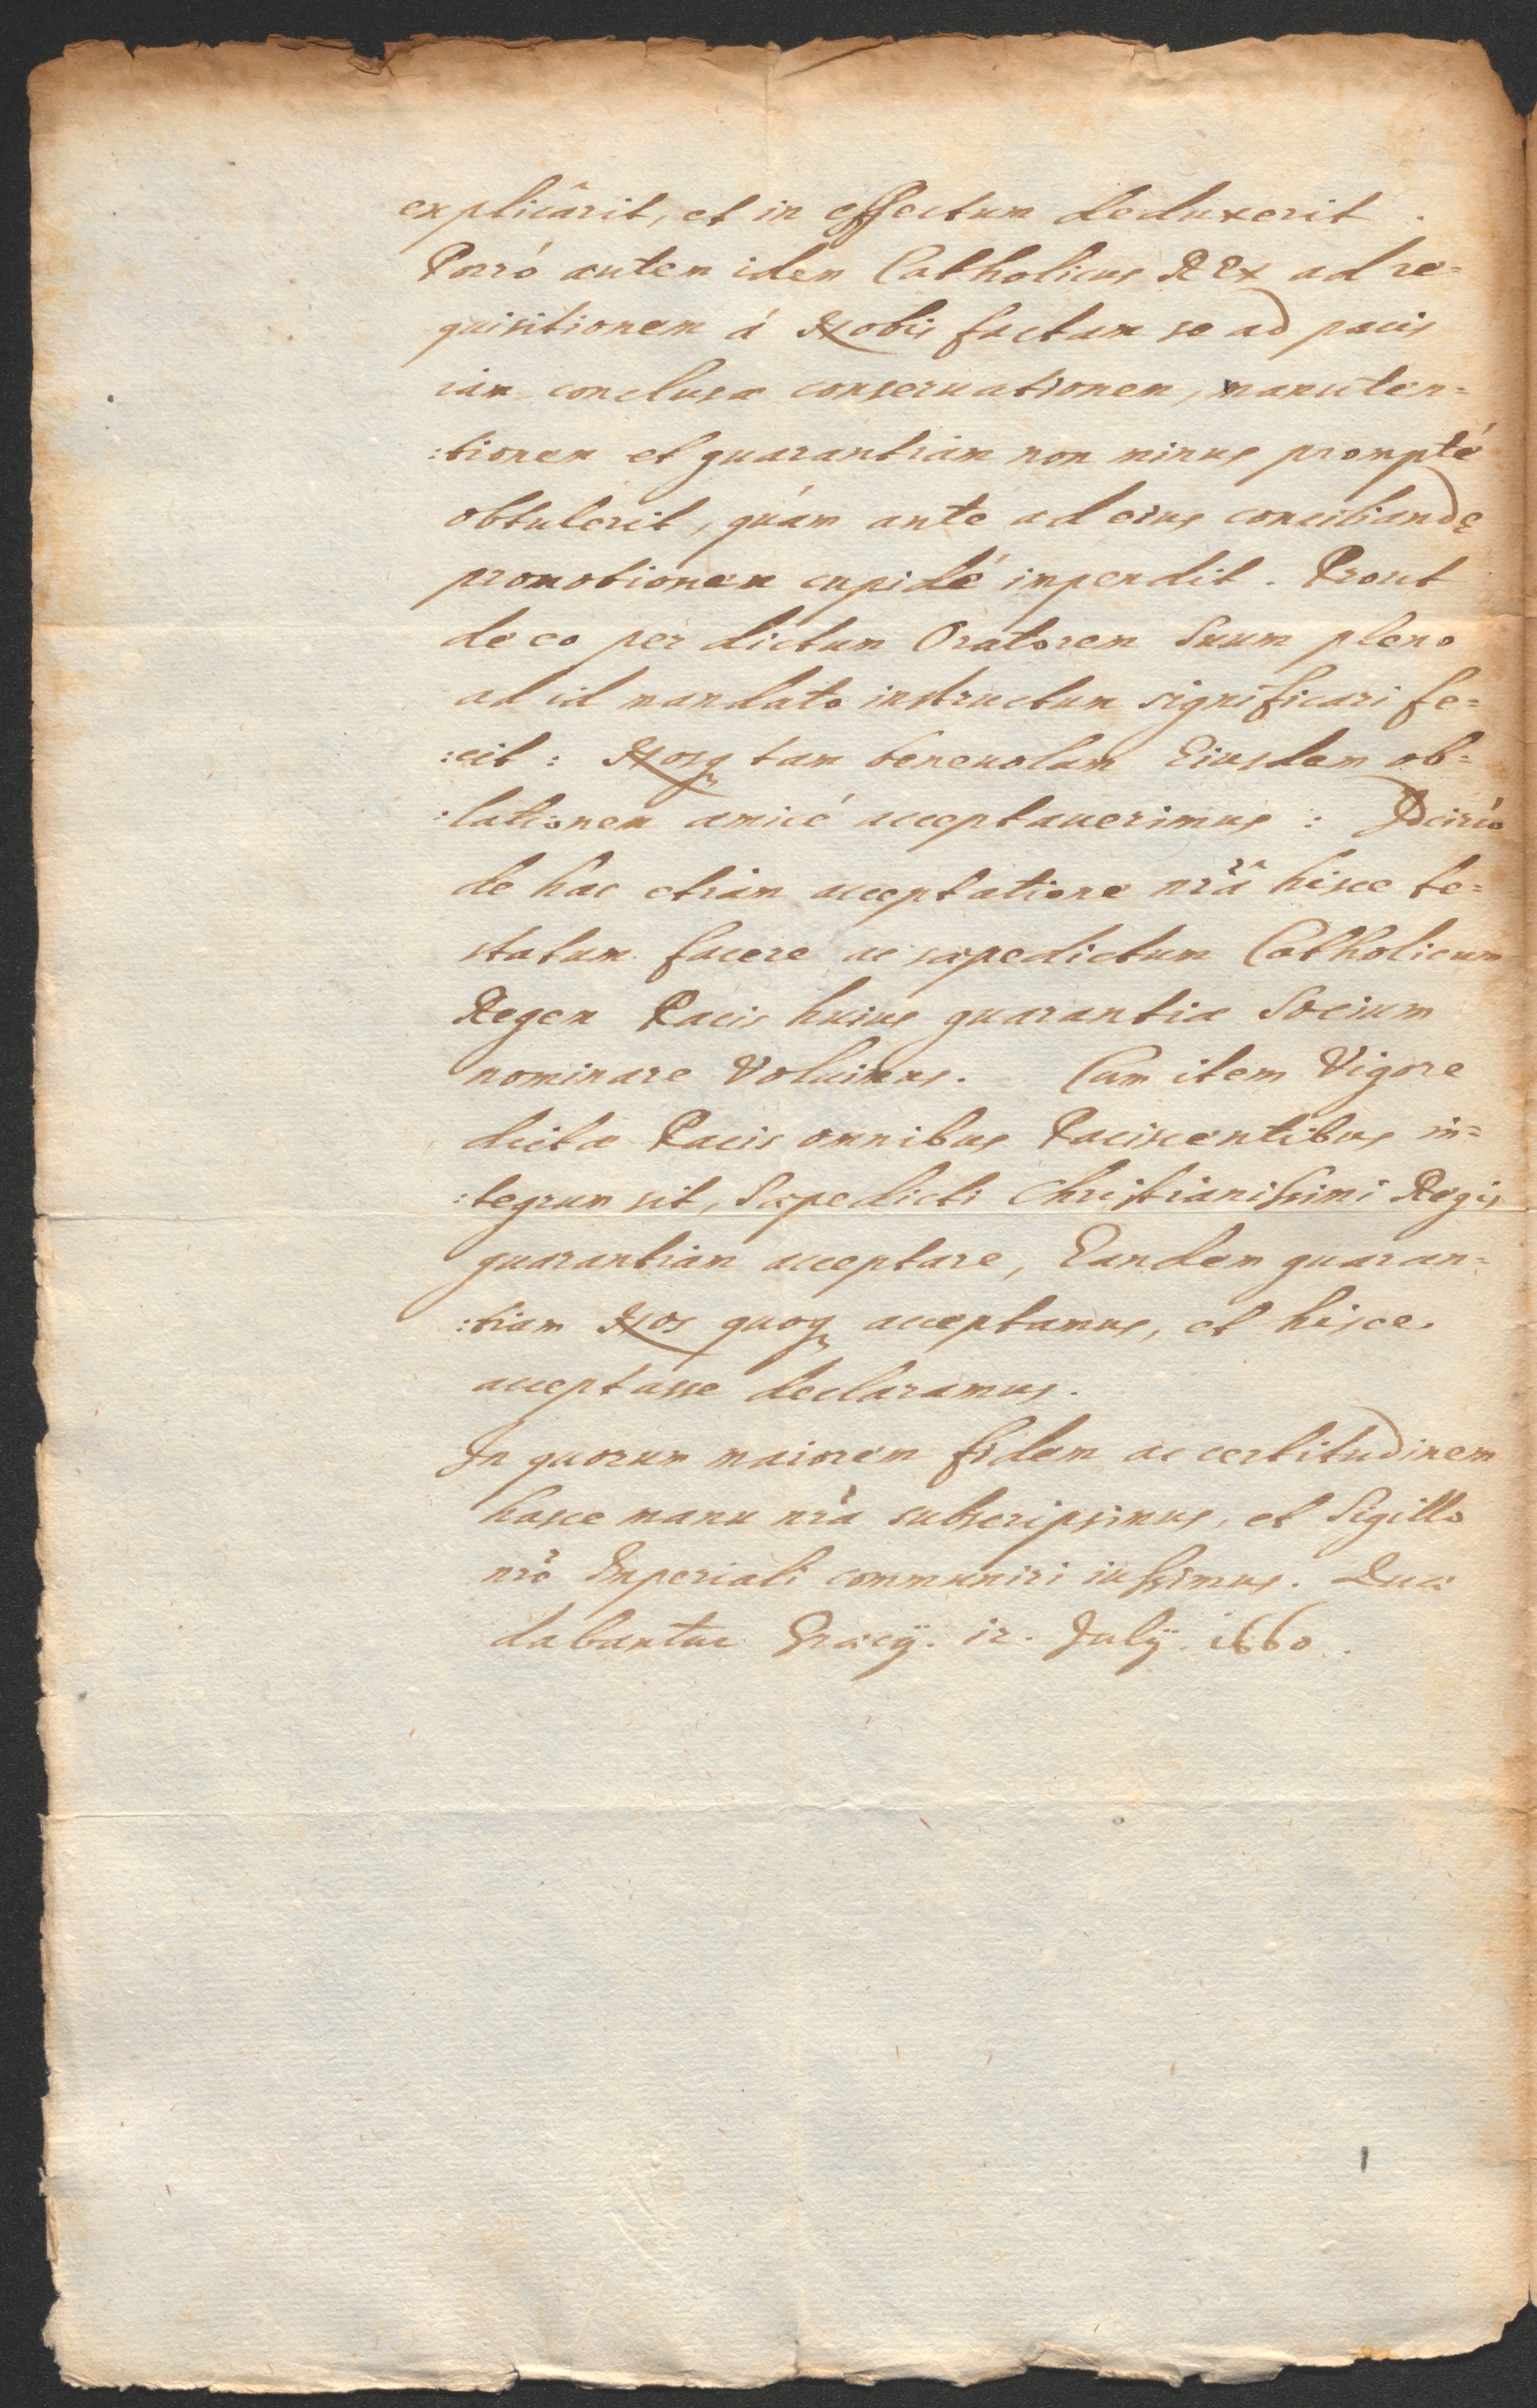 explicârit, et in effectum deduxerit.
Porró autem idem Catholicus REx ad re=
quisitionem á Nobis factam se ad pacis
iam conclusæ conseruationem, manuten=
:tionem et guarantiam non minus prompté
obtulerit, quám ante ad eius conciliandę
promotionem cupidé impendit. Prout
de eo per dictum Oratorem Suum pleno
ad id mandato instructum significari fe=
:cit: Nosq tam beneuolam Eiusdem ob=
:lationem amicé acceptauerimus: Idcircó
de hac etiam acceptatione nr̃â hisce te=
statum facere ac sæpedictum Catholicum
Regem Pacis huius guarantiæ Socium
nominare Voluimus. Cum item Vigore
dictæ Pacis omnibus Paciscentibus in=
:tegrum sit, Sæpedicti Christianissimi Regis
guarantiam acceptare, Eandem guaran=
:tiam Nos quoq acceptamus, et hisce
acceptasse declaramus.
In quorum maiorem fidem ac certitudinem
hasce manu nr̃a subscripsimus, et Sigillo
nr̃o Imperiali communiri iussimus. Quæ
dabantur Græcij. 12. Julij. 1660.